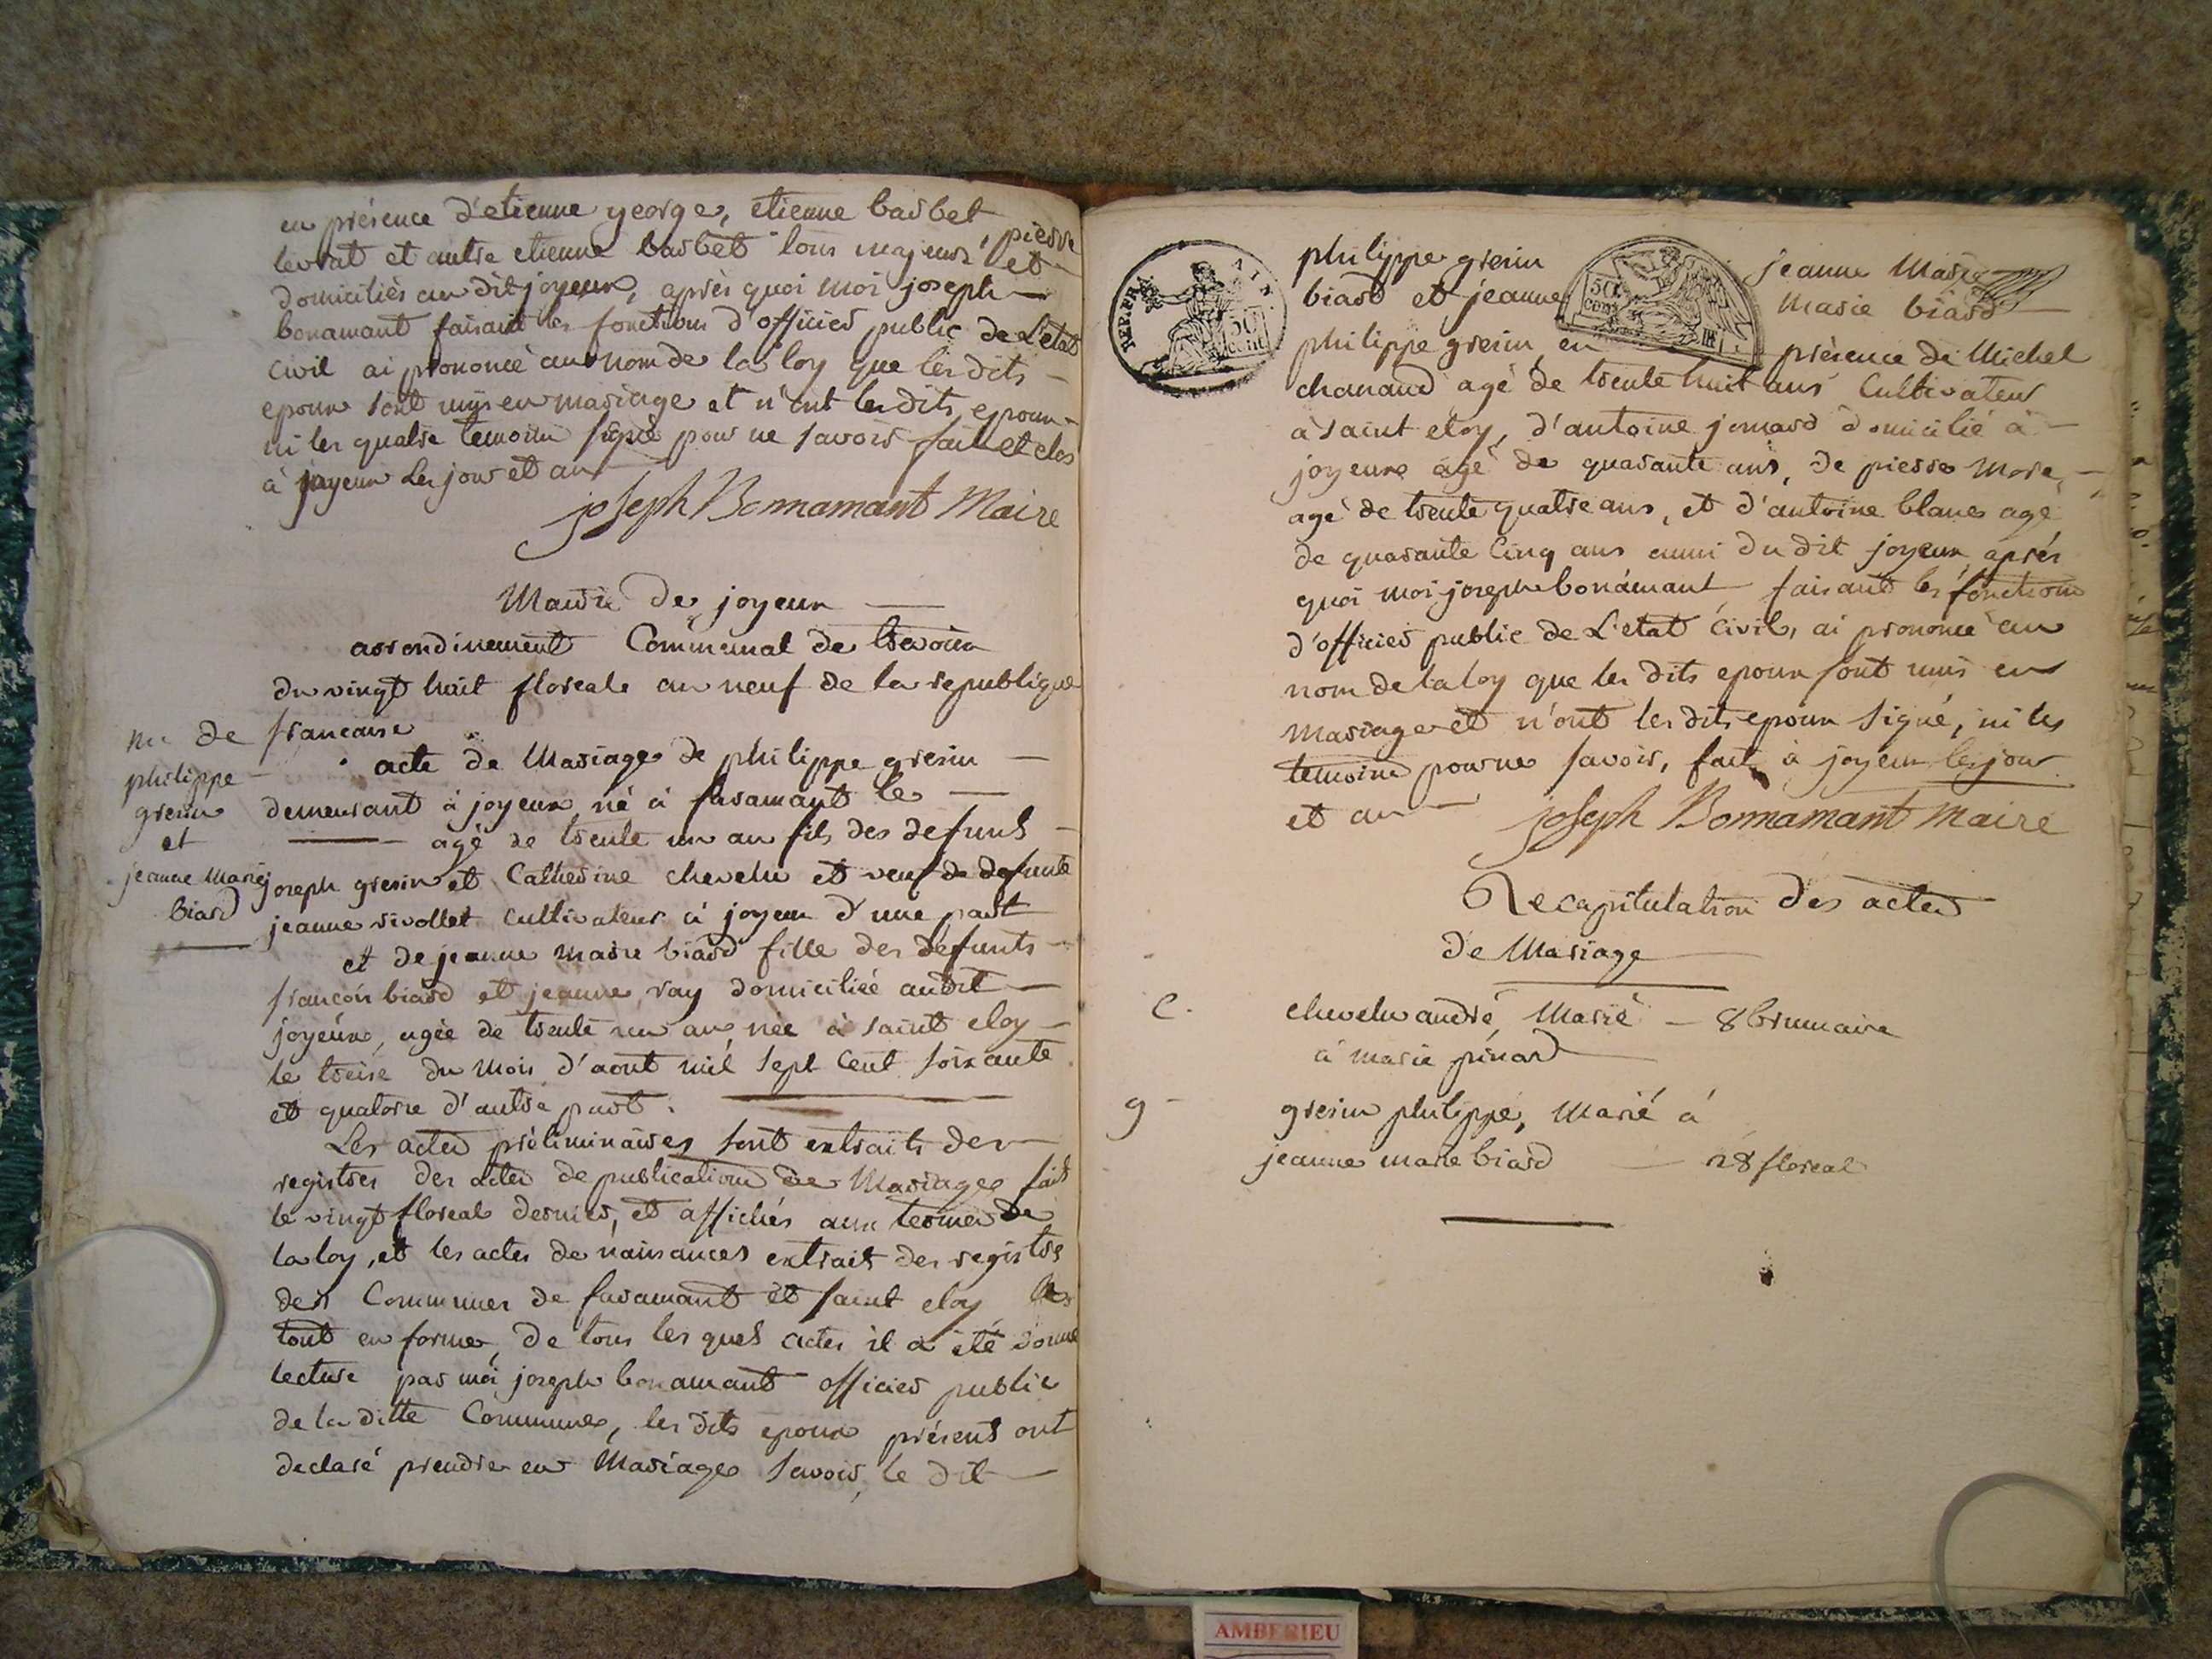 en présence d'etienne george, etienne barbet, pierre
levrat et autre etienne barbet tous majeurs et
domiciliés au dit joyeux, après quoi moi joseph
bonamant faisant les fonctions d'officier public de L'etat
civil ai prononcé au nom de la loy que les dits
epoux sont unis en mariage et n'ont les dits epoux
ni les quatre temoins signé pour ne savoir fait et clos
à joyeux les jour et an
joseph Bonnamant Maire
Mairie de joyeux
arrondinement Communal de trevoux
du vingt huit floreal an neuf de la republique
francaise
acte de Mariage de philippe gresin
demeurant à joyeux né à faramant le
agé de trente un an fils des defunts
joseph gresin et Catherine chevelu et veuf de defunte
jeanne rivollet cultivateur à joyeux d'une part
et de jeanne marie biard fille des défunts
francois biard et jeanne ray domiciliée audit
joyeux, agée de trente un an, née à saint eloy
le treise du mois d'aout mil sept cent soixante
et quatorze d'autre part.
Les actes préliminaires sont extraits des
registres des actes de publications de Mariages fait
le vingt floreal dernier, et affichés aux termes de
la loy, et les actes de naissances extrait des registre
des Communes de faramant et saint eloy
tout en forme, de tous les quels actes il a été donné
lecture par moi joseph bonamant officier public
de la ditte Commune, les dits epoux présent ont
declaré prendre en Mariage savoir, le dit
de
philippe
gresin
et
jeanne Marie
biard
REP. FRA.
50
cent
50
cent
philippe gresin jeanne Marie
biard et jeanne Marie biard
philippe gresin, en présence de Michel
chanaud agé de trente huit ans Cultivateur
à saint eloy, d'antoine jomard domicilié à
joyeux agé de quarante ans, de pierre More
agé de trente quatre ans, et d'antoine blanc agé
de quarante cinq ans aussi du dit joyeux, après
quoi moi joseph bonamant faisant les fonctions
d'officier public de L'etat civil, ai prononcé au
nom de la loy que les dits epoux sont unis en
mariage et n'ont les dits epoux signé, ni les
temoins pour ne savoir, fait à joyeux les jour
et an
joseph Bonnamant Maire
Recapitulation des actes
de Mariage
C.
chevelu andré, Marié - 8 brumaire
à marie pinard
g -
gresin philippe, Marié à
jeanne marie biard - 28 floreal
AMBERIEU